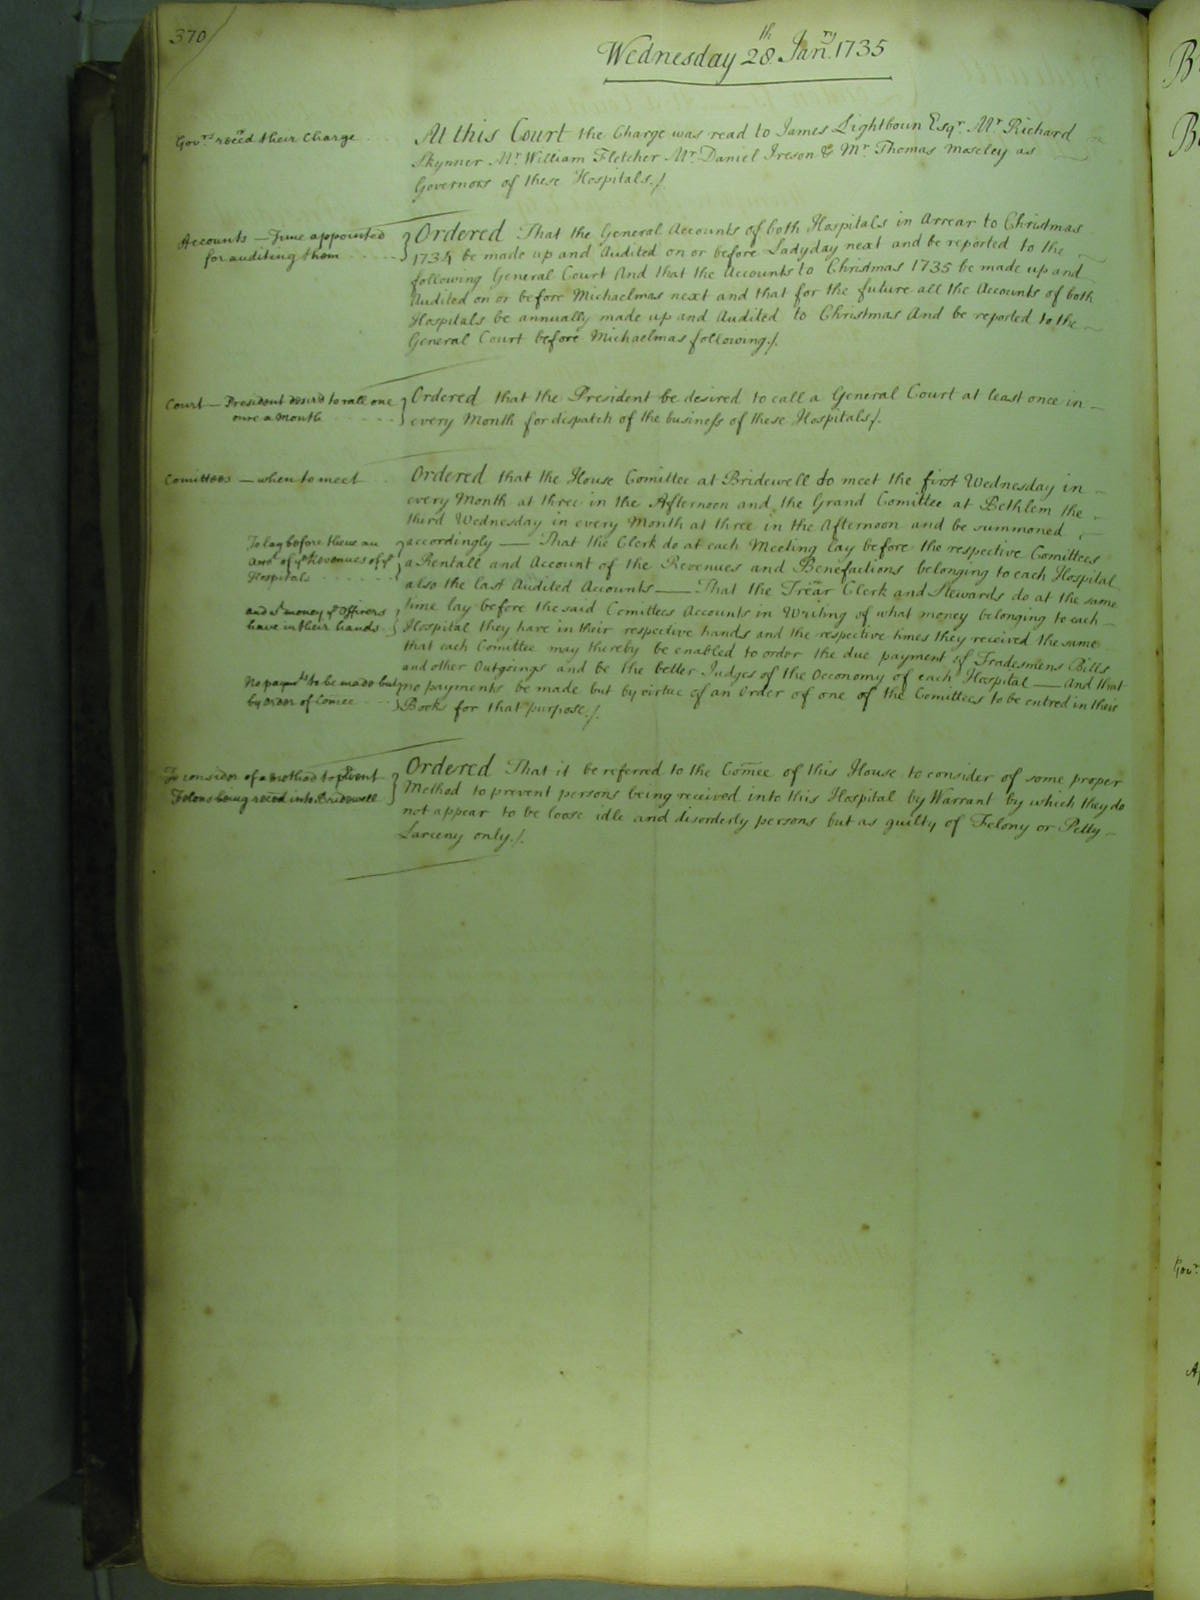 370
Wednesday 28th. Janry. 1735
Govrs. reced their Charge
At this Court the Charge was read to James Lightboun Esqr. Mr. Richard
Skynner Mr. William Fletcher Mr. Daniel Ireson & Mr. Thomas Moseley as
Governors of these Hospitals./.
Accounts — Time appointed
for auditing them
Ordered That the General Accounts of both Hospitals in Arrear to Christmas
1734 be made up and Audited on or before Ladyday next and be reported to the
following General Court And that the Accounts to Christmas 1735 be made up and
Audited on or before Michaelmas next and that for the future all the Accounts of both
Hospitals be annually made up and Audited to Christmas And be reported to the
General Court before Michaelmas following./.
Court — President desird to call one
once a Month
Ordered that the President be desired to call a General Court at least once in
every Month for dispatch of the business of these Hospitals/.
Comittees — when to meet
Ordered that the House Comittee at Bridewell do meet the first Wednesday in
every Month at three in the Afternoon and the Grand Comittee at Bethlem the
third Wednesday in every Month at three in the Afternoon and be summoned
To lay before them an
Acco. of ye Revenues of ye
Hospitals
accordingly — That the Clerk do at each Meeting lay before the respective Comittees
a Rentall and Account of the Revenues and Benefactions belonging to each Hospital
also the last Audited Accounts — That the Trear Clerk and Stewards do at the same
and wt. money ye Officers
have in their hands
time lay before the said Comittees Accounts in Writing of what money belonging to each
Hospital they have in their respective hands and the respective times they received the same
that each Comittee may thereby be enabled to order the due payment of Tradesmens Bills
and other Outgoings and be the better Judges of the Oeconomy of each Hospital — And that
No paymts to be made but
by Order of Comee
no payments be made but by virtue of an Order of one of the Comittees to be entred in their
Books for that purpose./.
To consider of a method to prvent
Felons being reced into Bridewell
Ordered That it be referred to the Comee of this House to consider of some proper
Method to prevent persons being received into this Hospital by Warrant by which they do
not appear to be loose idle and disorderly persons but as guilty of Felony or Petty
Larceny only./.